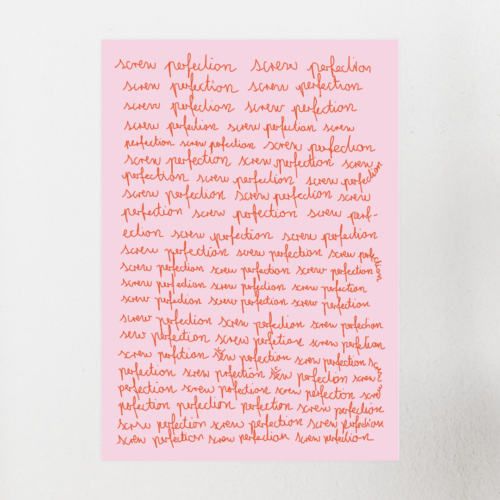 screw perfection screw perfection
screw perfection screw perfection
screw perfection screw perfection
screw perfection screw perfection screw
perfection screw perfection screw perfection
screw perfection screw perfection screw
perfection screw perfection screw perfection
screw perfection screw perfection screw
perfection screw perfection screw perf-
ection screw perfection screw perfection
screw perfection screw perfection screw perfection
screw perfection screw perfection screw perfection
screw perfection screw perfection screw perfection
screw perfection screw perfection screw perfection
screw perfection screw perfection screw perfection
screw perfection screw perfection screw perfection
screw perfection screw perfection screw perfection screw
perfection screw perfection screw perfection screw
perfection screw perfection screw perfection screw
perfection perfection perfection screw perfection
screw perfection screw perfection screw perfection
screw perfection screw perfection screw perfection